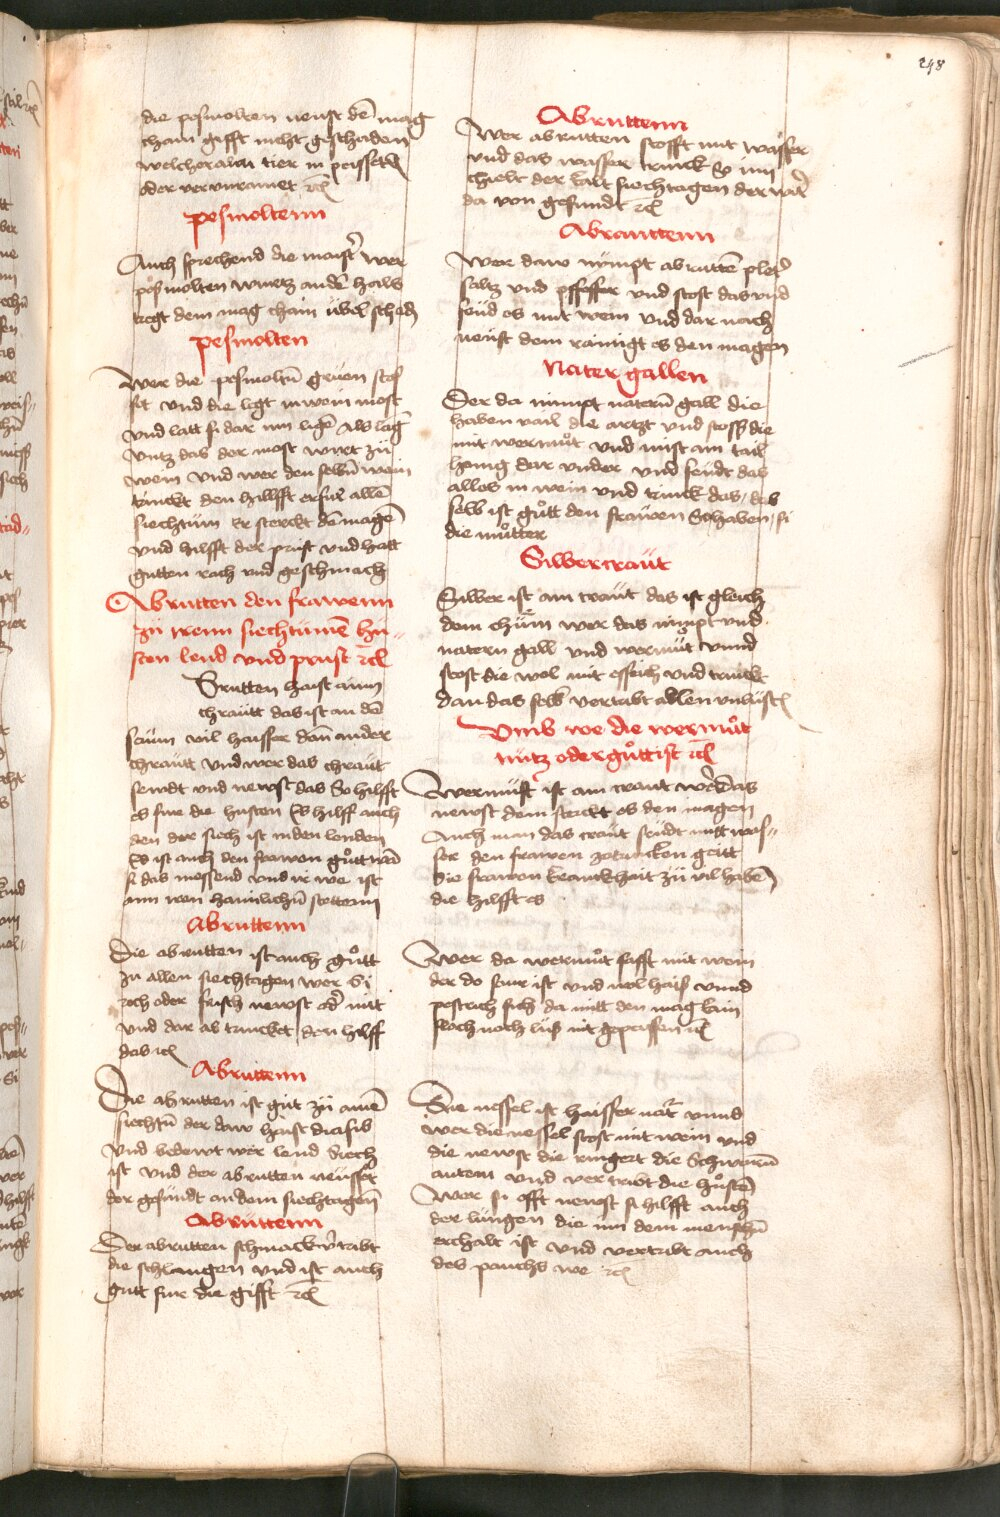 248
die pesmolten neust dē mag
chain gifft nicht geschaden
welcheralaii tier in peissetñ
oder verunramet rc
pesmoltenn
Auch sprechend die maist̃ wer
pesmolten wurtz an dē hals
tregt dem mag chain übel schadñ
pesmolten
Wer die pesmoltñ gruen stos
set und die legt in wein most
und latt si dar inn ligñ als lang
untz das der most wirt zü
wein und wer den selbñ wein
trinckt den hillfft er für allñ
siechtüm Er sterckt dē magē
und hilfft der prust und hatt
gutten rach und geschmach
Abrutten den frawenn
zü irenn siechtümē hü-
sten lend und prust rcl
Brutten haist ainn
chrautt das ist an dē
saum vil haisser dan ander
chrautt und wer das chraut
sewdt und newst das So hilfft
es fur die husten Es hilff auch
den der siech ist in den lenden
Es ist auch den frawen gůtt wañ
si das niessend und ir we ist
ann iren haimlichñ stettenn
Abruttenn
Die abrutten ist auch gůtt
zu allen siechtagen wer Si
roch oder frisch newst od̃ mit
und dar ab trincket den hilff
das rc
Abruttenn
Die abrutten ist gut zü ainē
siechtū der daw haist diafis
und bedewt wer lend siech
ist und der abrutten neusset
der gesundt an dem siechtagen
Abruttenn
Der abrutten schmack vertribt
die schlangen und ist auch
gutt fur die gifft rc
Abruttenn
Wer abrutten stosst mit wasser
und das wasser trinck Es im
chielt der kalt siechtagen der wirt
da von gesundt rc
Abrauttenn
Wer daw nympt abruttē pleter
saltz und pfeffer und stost das und
seud es mit wein und dar nach
neust dem rainigt es den magen
Nater gallen
Der da nimpt naterñ gall die
haben vail die artzt und stoss die
mit wermůt und mist ain tail
honig dar under und seudt das
alles in wein und trinck das, das
selb ist gůtt den frawen So haben si
die můtter
Silbercraut
Silber ist ain craut das ist gleich
dem chum wer das nimpt und
natern gall und wermůt unnd
stost die wol mit essich und trinckt
dan das selb vertribt allen unlustñ
Umb we die wermůt
nütz oder gůtt ist rcl
Wermůtt ist ain craut wer das
newst dem sterckt es den magen
Auch man das craut seudt mitt was-
ser den frawen zetrincken geitt
die frawen kranckhait zü vil habē
die hilfft es
Wer da wermůt safft mit wein
der do saur ist und wol hais unnd
pestrich sich da mitt den mag kain
floch noch lüs nit gepeissen rc
Die nessel ist haisser natr unnd
wer die nessel stost mit wein und
die newst die ringert die Schwarñ
autem und vertribt die hůstē
Wer si offt newst si hilfft auch
der lungen die inn dem menschñ
erchalt ist und vertribt auch
des pauchs we rc